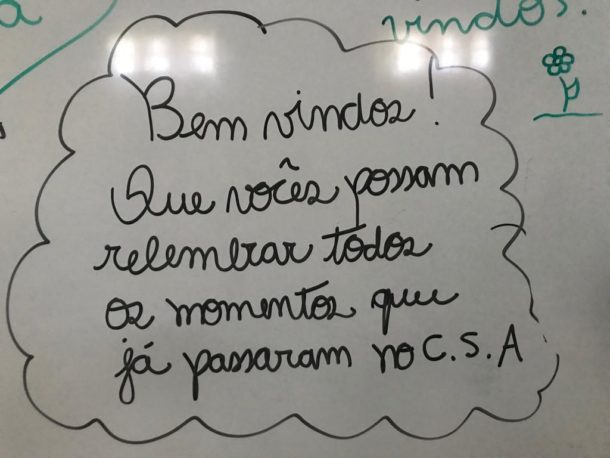 a
vindos.
Bem vindos!
Que vocês possam
relembrar todos
os momentos que
já passaram no C.S.A